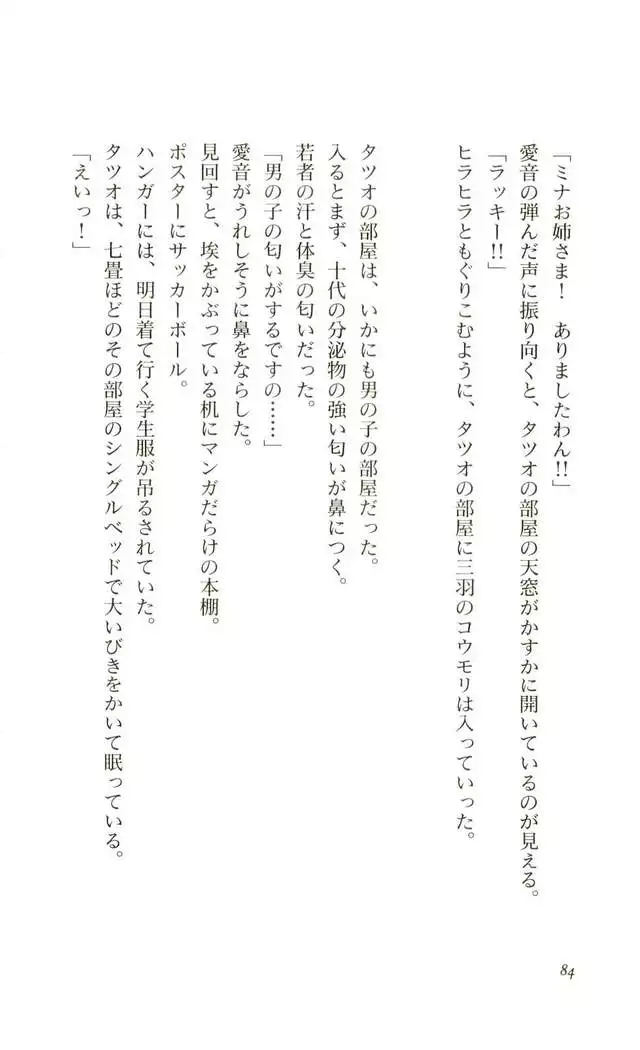 「ミナお姉さま！　ありましたわん!!」
愛音の弾んだ声に振り向くと、タツオの部屋の天窓がかすかに開いているのが見える。
「ラッキー!!」
ヒラヒラともぐりこむように、タツオの部屋に三羽のコウモリは入っていった。
タツオの部屋は、いかにも男の子の部屋だった。
入るとまず、十代の分泌物の強い匂いが鼻につく。
若者の汗と体臭の匂いだった。
「男の子の匂いがするですの……」
愛音がうれしそうに鼻をならした。
見回すと、埃をかぶっている机にマンガだらけの本棚。
ポスターにサッカーボール。
ハンガーには、明日着て行く学生服が吊るされていた。
タツオは、七畳ほどのその部屋のシングルベッドで大いびきをかいて眠っている。
「えいっ！」
84